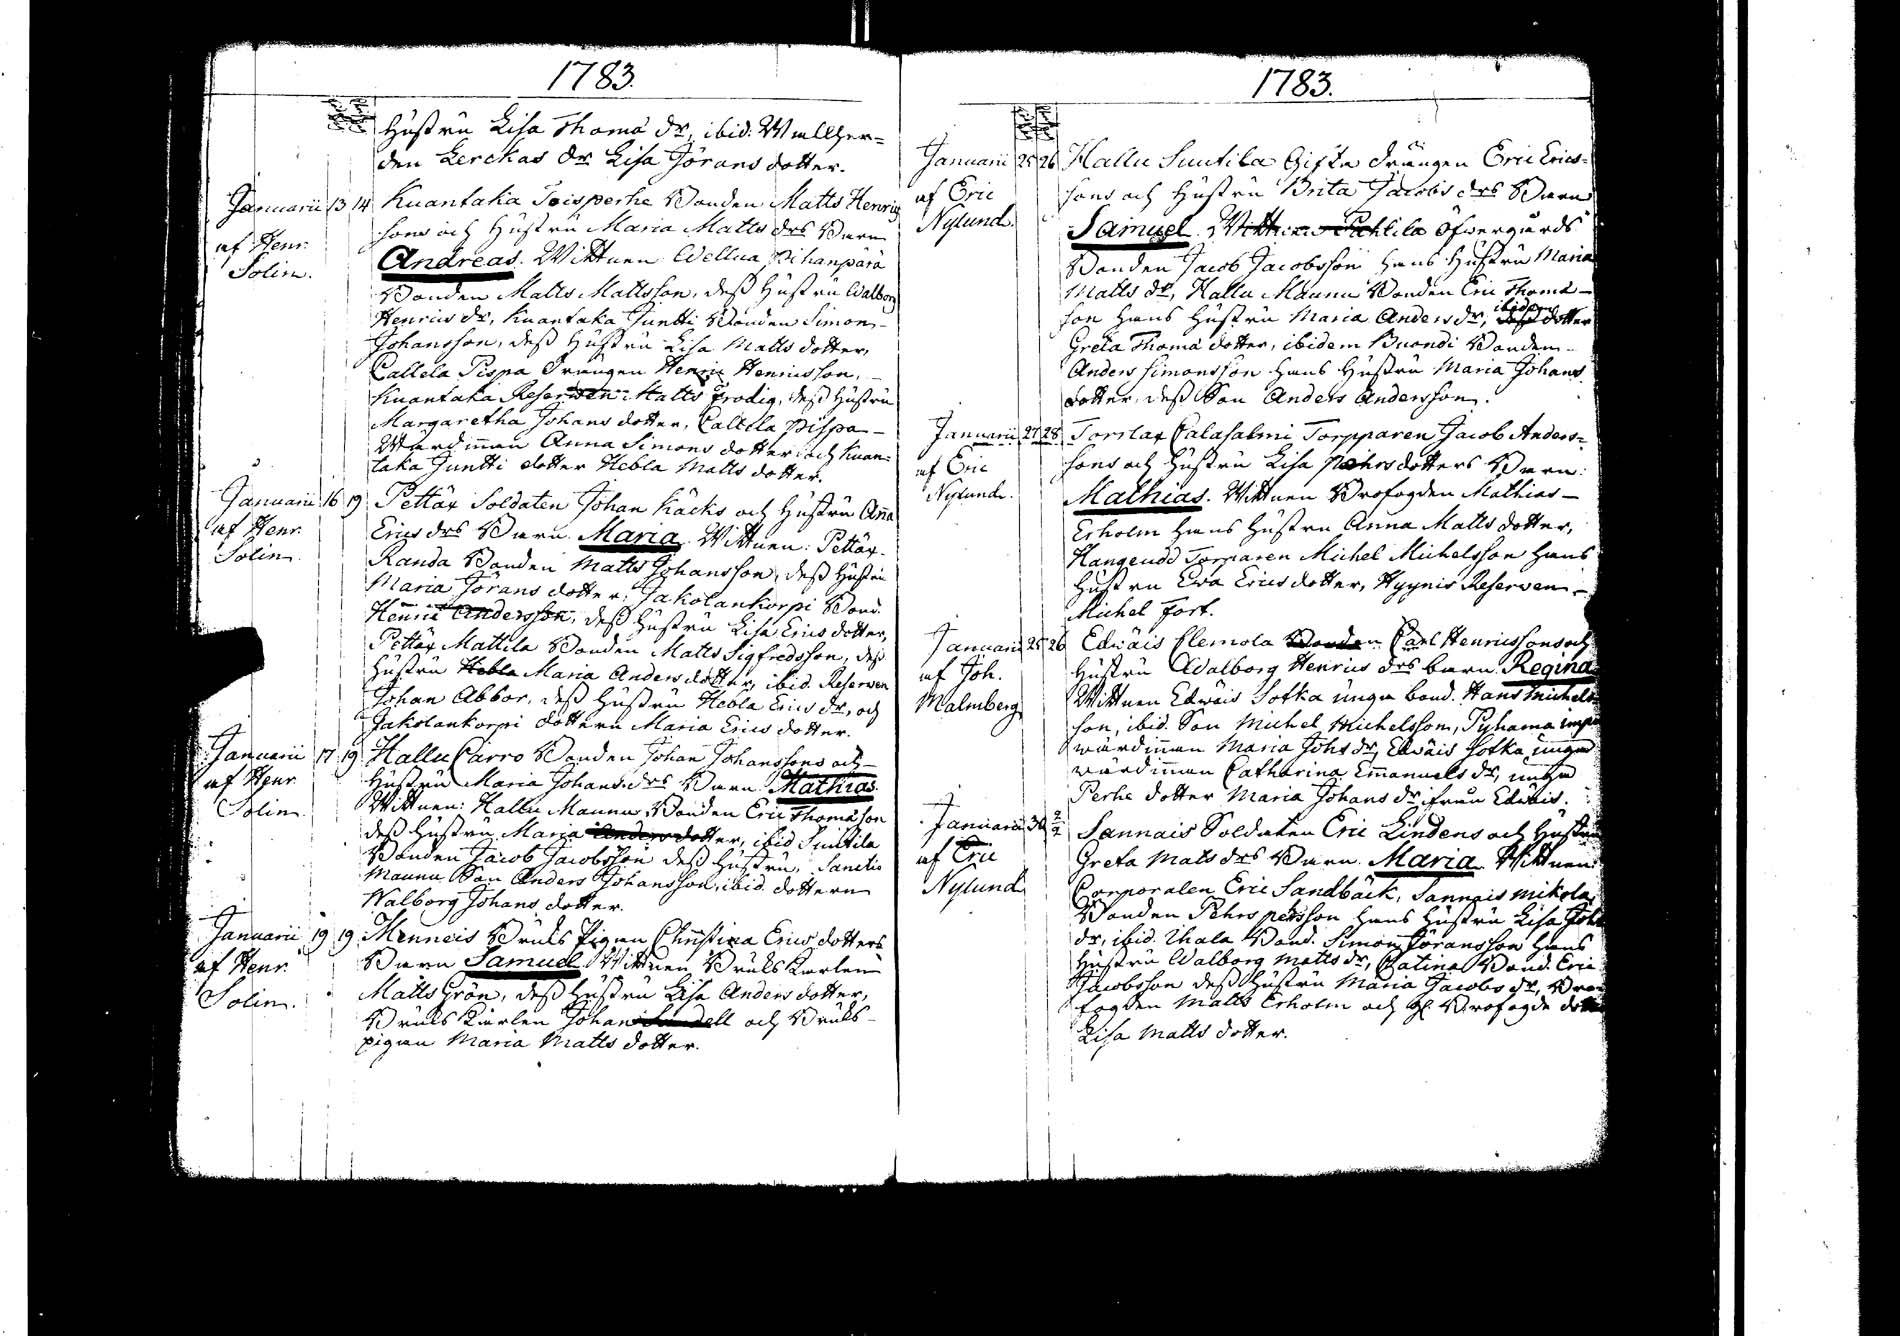 1783.
hustru Lisa Thomæ dr, ibid. Wallher=
den Lerckas dr Lisa Jörans dotter.
Januarii 13 14 Kuanfaka Toisperhe Bonden Matts Henrics
af Henr. sons och Hustru Maria Matts drs Barn
Solin. Andreas. Wittnen Wellua Pihanpärä
Bonden Matts Mattsson, dess Hustru Walborg
Henrics dr, Kuanfaka Juntti Bonden Simon
Johansson, dess Hustru Lisa Matts dotter,
Callela Pispa Drängen Henric Henricsson,
Kuanfaka Reserven Matts Frodig, dess Hustru
Margaretha Johans dotter, Callela Pispa
Wärdinnan Anna Simons dotter och Kuan=
faka Juntti dotter Hebla Matts dotter.
Januarii 16 19 Pettäx Soldaten Johan Käcks och Hustru Anna
af Henr. Erics drs Barn Maria. Wittnen: Pettäx
Solin. Randa Bonden Matts Johansson, dess Hustru
Maria Jörans dotter; Jakolankorpi Bond.
Henric Andersson, dess Hustru Lisa Erics dotter,
Pettäx Mattila Bonden Matts Sigfredsson, dess
Hustru Hebla Maria Anders dotter, ibid. Reserven
Johan Abbor, dess Hustru Hebla Erics dr, och
Jakolankorpi dottern Maria Erics dotter.
Januarii 17 19 Hallu Carro Bonden Johan Johanssons och
af Henr. Hustru Maria Johans drs Barn Mathias.
Solin. Wittnen: Hallu Maunu Bonden Eric Thomason
dess Hustru Maria Anders dotter, ibid Suutila
Bonden Jacob Jacobsson dess Hustru, Sanctio
Maunu Son Anders Johansson, ibid. dottern
Walborg Johans dotter.
Januarii 19 19 Menneis Bruks Pigan Christina Erics dotters
af Henr. Barn Samuel. Wittnen Bruks Karlen
Solin. Matts Grön, dess Hustru Lisa Anders dotter,
Bruks Karlen Johan Sundell och Bruks-
pigan Maria Matts dotter.
1783.
Januarii 25 26 Hallu Suutila Gifta Drängen Eric Erics=
af Eric sons och Hustru Brita Jacobs drs Barn
Nylund. Samuel. Wittnen Pahtila Öfvergårds
Bonden Jacob Jacobsson hans Hustru Maria
Matts dr, Hallu Maunu Bonden Eric Thomæ-
son hans Hustru Maria Anders dr, ibid. dess dotter
Greta Thomæ dotter, ibidem Buondi Bonden
Anders Simonsson hans Hustru Maria Johans
dotter, dess Son Anders Andersson.
Januarii 27 28 Torslax Calasalmi Torpparen Jacob Anders=
af Eric sons och Hustru Lisa Pehrs dotters Barn:
Nylund. Mathias. Wittnen Profogden Mathias
Erholm hans Hustru Anna Matts dotter,
Hangeudd Torparen Michel Michelsson hans
Hustru Eva Erics dotter, Hyynis Reserven
Michel Fort.
Januarii 25 26 Edwäis Clemola Bonden Carl Henricssons och
af Joh. Hustru Walborg Henrics drs barn Regina
Malmberg Wittnen Edwäis Sofka unga bond. Hans Michels
son, ibid. Son Michel Michelsson, Pyhama impi
wärdinnan Maria Johs dr, Edwäis Sofka unga
wärdinnan Catharina Emanuels dr, unga
Perhe dotter Maria Johans dr ifrån Edwäis.
Januarii 30 2/2 Sannais Soldaten Eric Lindens och Hustru
af Eric Greta Mats drs Barn. Maria. Wittnen
Nylund Corporalen Eric Sandbäck, Sannais Mikola
Bonden Pehrs Persson hans Hustru Lisa Joh
dr, ibid. Uhala Bond. Simon Jöransson hans
Hustru Walborg Matts dr, Catina Bond. Eric
Jacobsson dess Hustru Maria Jacobs dr, Pro
fogden Matts Erholm och Profogde
Lisa Matts dotter.